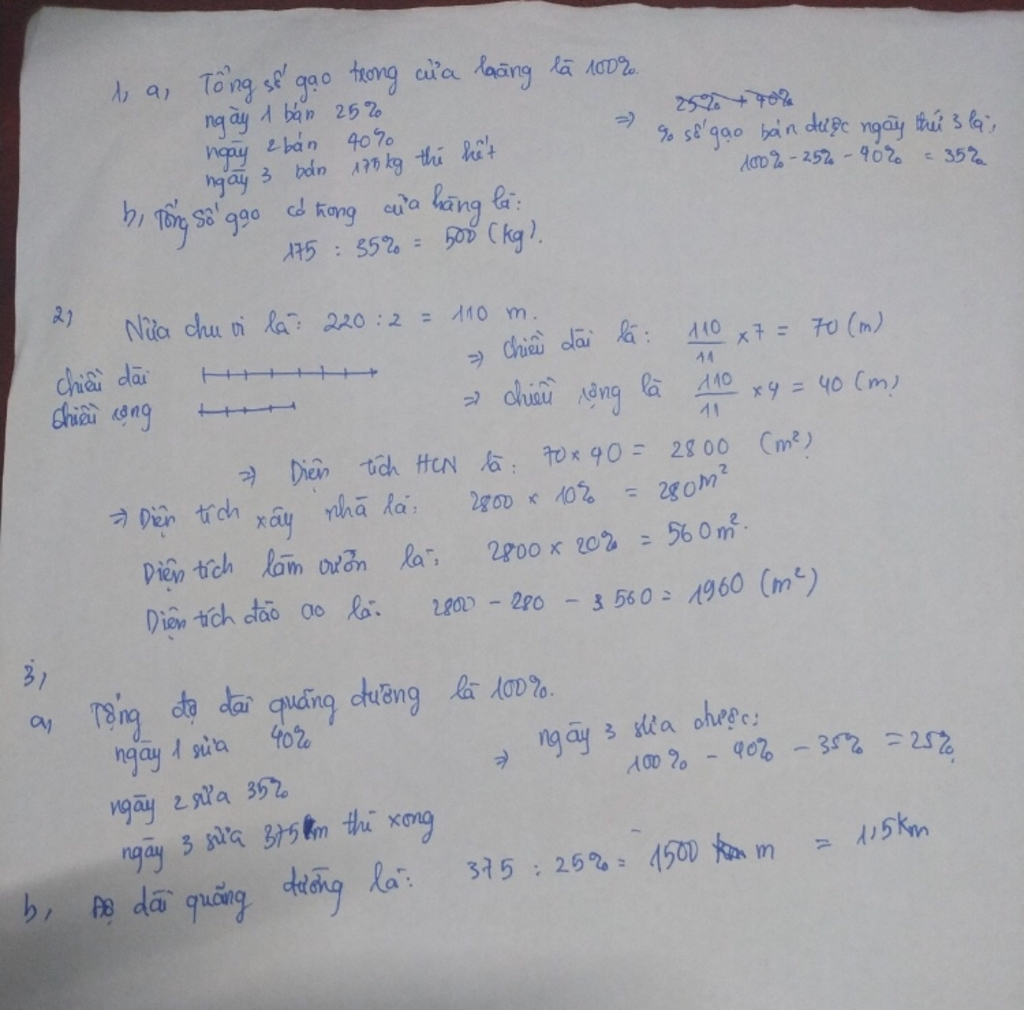 1, a, Tổng số gạo trong cửa hàng là 100%.
ngày 1 bán 25%
ngày 2 bán 40%
ngày 3 bán 175kg thì hết
25% + 40%
=> % số gạo bán được ngày thứ 3 là:
100% - 25% - 40% = 35%
b, Tổng số gạo có trong cửa hàng là:
175 : 35% = 500 (kg).
2,
Nửa chu vi là: 220 : 2 = 110 m.
chiều dài
chiều rộng
=> chiều dài là: 110/11 x 7 = 70 (m)
=> chiều rộng là 110/11 x 4 = 40 (m)
=> Diện tích HCN là: 70 x 40 = 2800 (m²)
=> Diện tích xây nhà là: 2800 x 10% = 280m²
Diện tích làm vườn là: 2800 x 20% = 560m².
Diện tích đào ao là: 2800 - 280 - 560 = 1960 (m²)
3,
a, Tổng độ dài quãng đường là 100%.
ngày 1 sửa 40%
ngày 2 sửa 35%
ngày 3 sửa 375m thì xong
=> ngày 3 sửa được:
100% - 40% - 35% = 25%
b, Độ dài quãng đường là: 375 : 25% = 1500 m = 1,5km